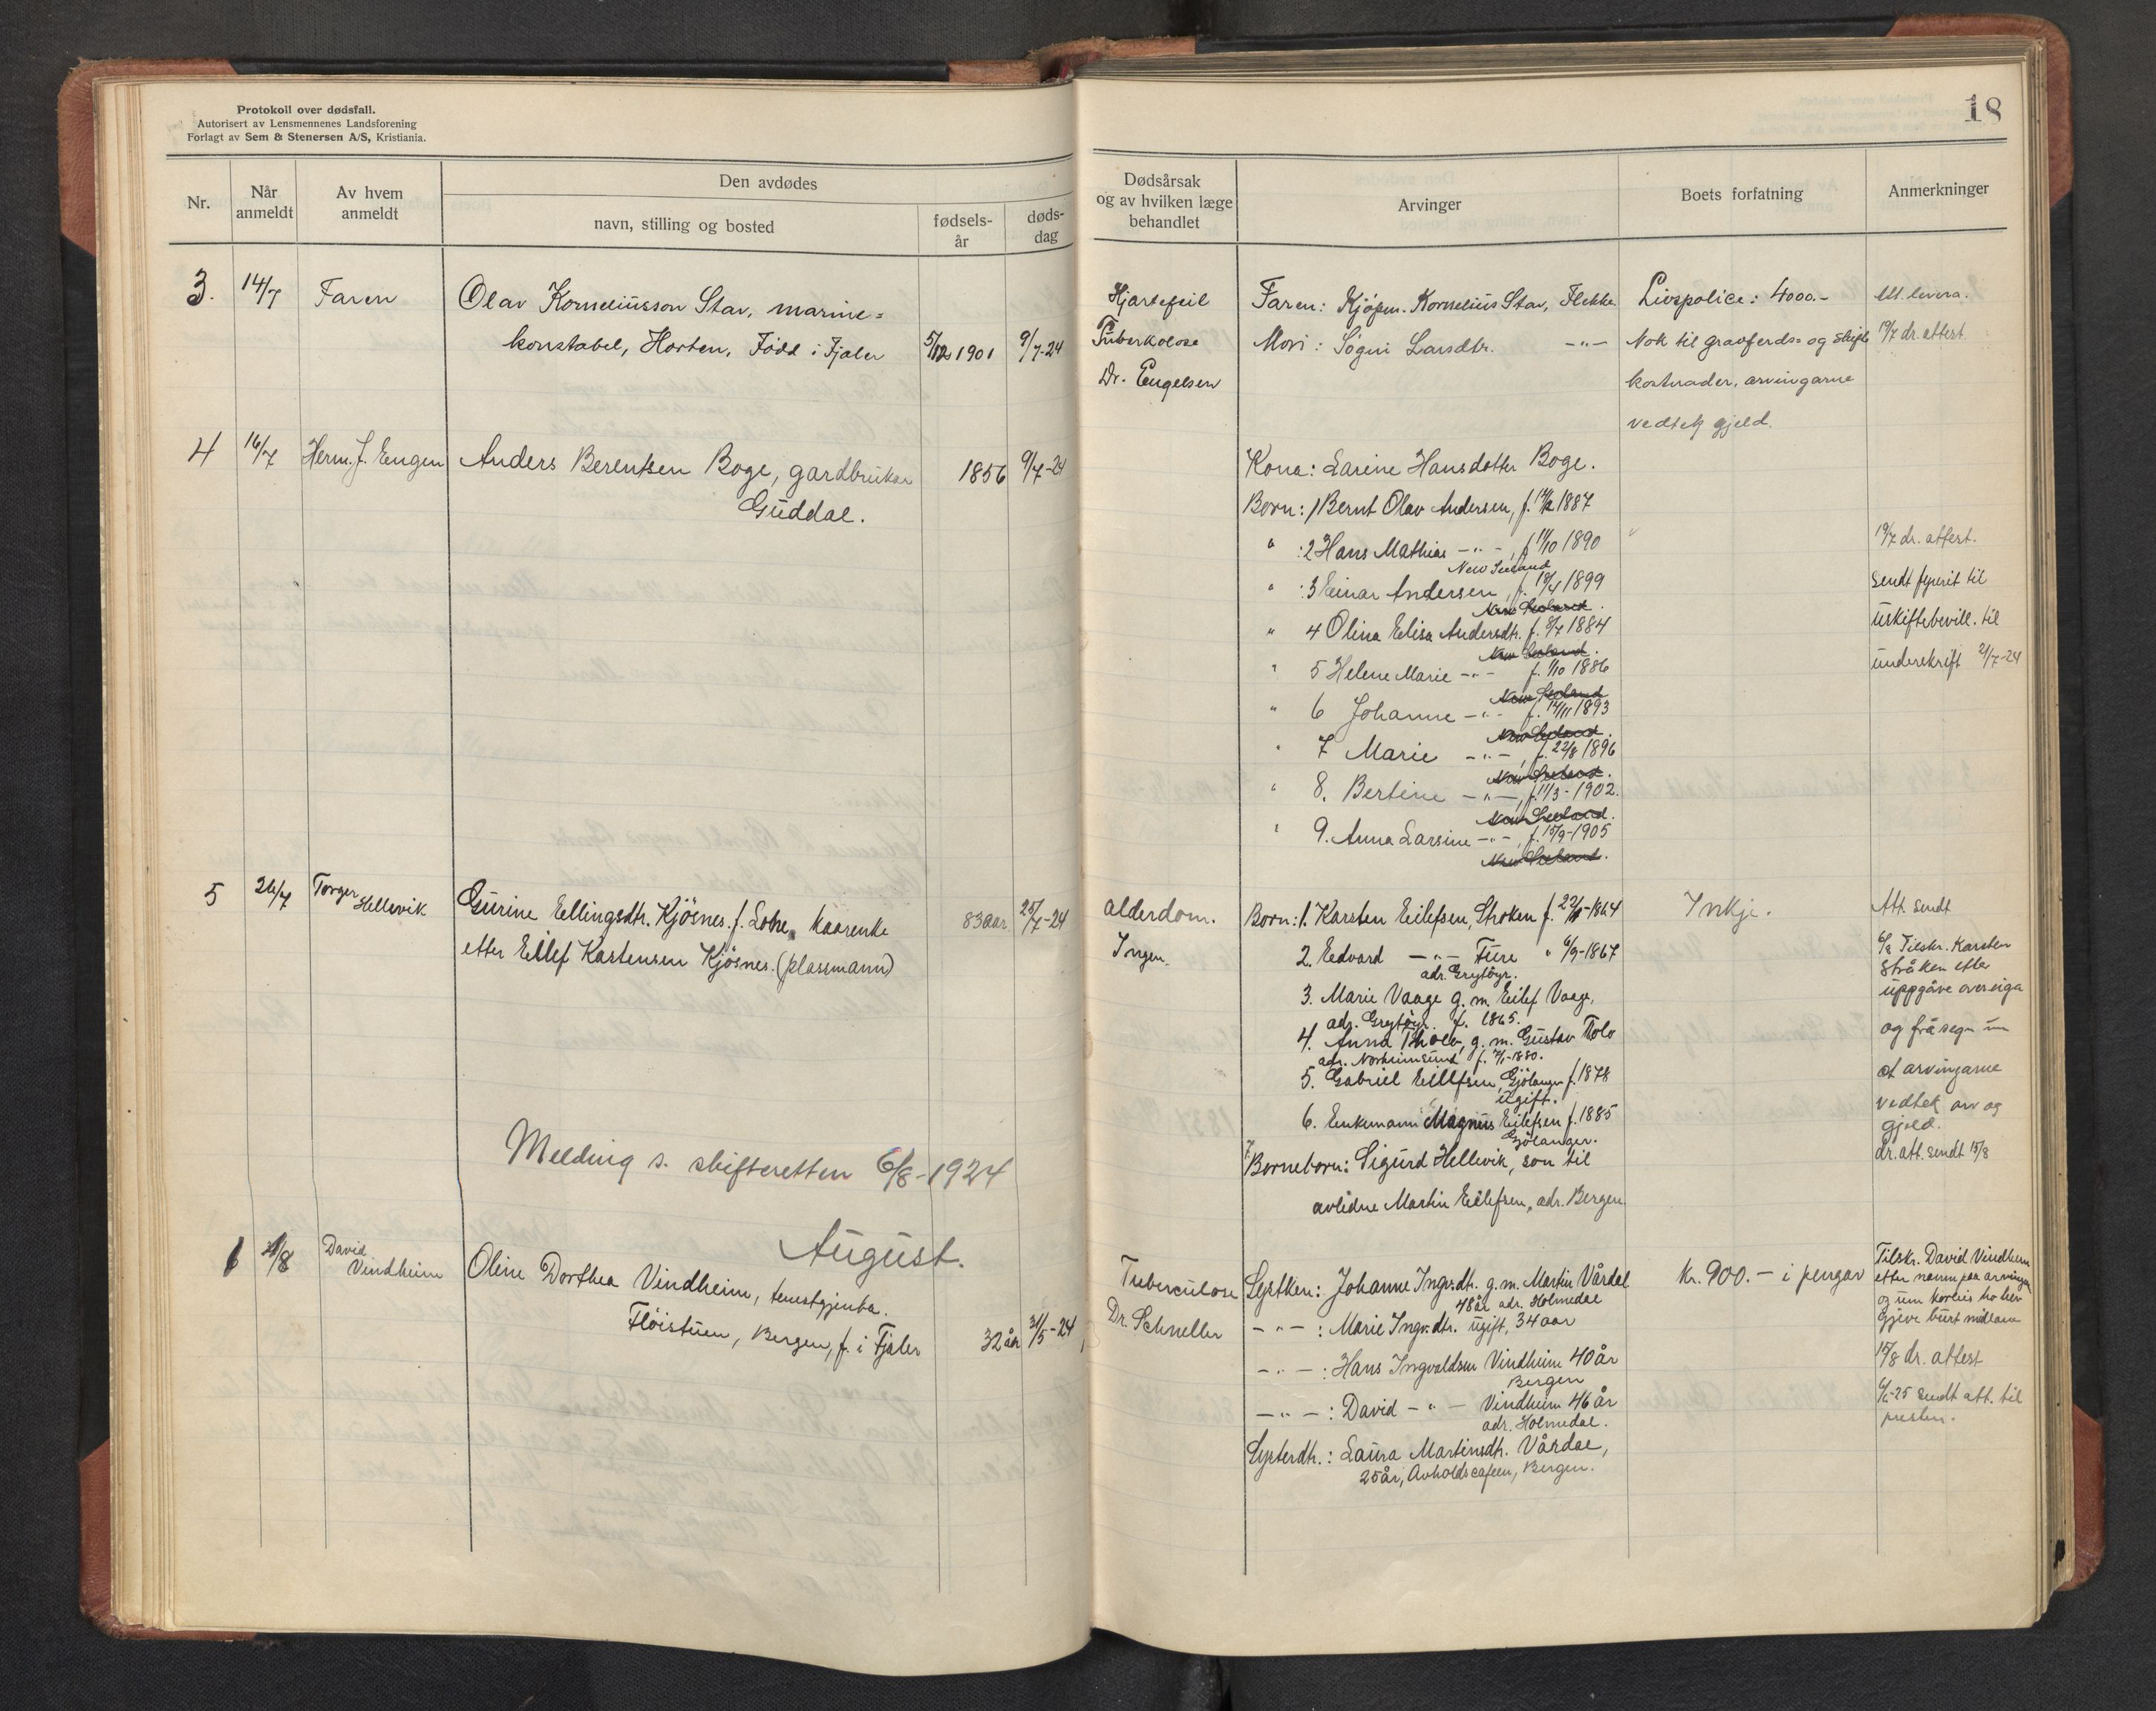 Protokoll over dødsfall.
Autorisert av Lensmennenes Landsforening
Forlagt av Sem & Stenersen A/S, Kristiania.
18
Nr.
Når anmeldt
Av hvem anmeldt
Den avdødes
navn, stilling og bosted
fødselsår
dødsdag
Dødsårsak
og av hvilken læge
behandlet
Arvinger
Boets forfatning
Anmerkninger
3. 14/7 Faren Olav Korneliusson Stav, marine=
konstabel, Horten, Född i Fjaler 5/12 1901 9/7-24
Hjartefeil
Tuberkolose
Dr. Engelsen
Faren: Kjöpm. Kornelius Stav, Flekke
Mori: Sögni Larsdtr. -"-
Livspolice: 4000.-
Nok til gravferds= og skifte
kostnader, arvingarne
vedtek gjeld.
19/7 dr. attest
4 16/7 Herm. J. Engen Anders Berentsen Boge, gardbrukar 1856 9/7-24
Guddal.
Kona: Larine Hansdotter Boge.
Born: 1 Bernt Olav Andersen, f. 14/2 1887
" : 2 Hans Mathias -"-, f. 11/10 1890
New Seeland
" : 3 Einar Andersen, f. 18/4 1899
New Seeland.
" 4 Olina Elisa Andersdtr. f. 8/7 1884
New Seeland.
" 5 Helene Marie -"- f. 1/10 1886
New Seeland
" 6 Johanne -"- f. 14/11 1893
New Seeland.
" 7 Marie -"-, f. 22/8 1896
New Seeland.
" 8. Bertine -"-, f. 11/3-1902.
New Seeland.
" 9. Anna Larsine -"-, f. 15/9-1905
New Seeland.
19/7 dr. attest.
sendt fyrerit til
uskiftebevill. til
underskrift 21/7-24
5 26/7 Torger Hellevik Gurine Ellingsdtr. Kjösnes. f. Lotre, kaarenke 83 aar. 25/7-24
etter Eilef Karstensen Kjösnes. (plassmann)
alderdom.
Ingen.
Born: 1. Karsten Eilefsen, Stroken f. 22/11-1864
2. Edvard -"- Fure " 6/9-1867
adr. Grytöyr.
3. Marie Vaage g.m. Eilef Vaage,
adr. Grytöyr. f. 1865.
4. Anna Tholo, g.m. Gustav Tolo
adr. Norheimsund f. 7/1-1880.
5. Gabriel Eilefsen, Gjölanger f. 1878
ugift.
6. Enkemann Magnus Eilefsen f. 1885
Gjölanger.
7. Borneborn: Sigurd Hellevik, son til
avlidne Martin Eilefsen, adr. Bergen.
Inkje.
Att. sendt
6/8 Tilskr. Karsten
Stråken etter
uppgåve over eiga
og fråsegn um
at arvingarne
vedtek arv og
gjeld.
dr. att. sendt 15/8
Melding s. skifteretten 6/8-1924
August.
6 4/8 David Vindheim Oline Dorthea Vindheim, tenestgjenta.
Flöistuen, Bergen, f. i Fjaler 32 år 31/5-24
Tuberculose
Dr. Schneller
Systken: Johanne Ingv.dtr. g.m. Martin Vårdal
48 år adr. Holmedal
-"-: Marie Ingv.dtr. ugift, 34 aar
-"-: Hans Ingvaldsen Vindheim 40 år
Bergen
-"-: David -"- Vindheim 46 år
adr. Holmedal.
Systerdtr.: Laura Martinsdtr. Vårdal,
25 år, Avholdscafeen, Bergen.
Kr. 900.- i pengar
Tilskr. David Vindheim
etter namn paa arvingar
og um korleis ho hev
gjeve burt midlarne
15/8 dr. attest
sendt att. til